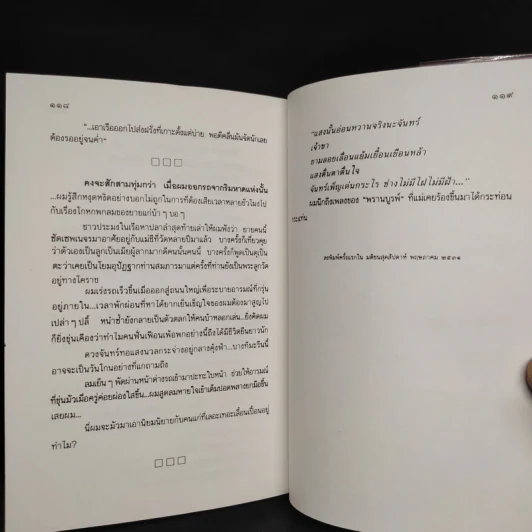 ๑๑๘
"...เอาเรือออกไปส่งฝรั่งที่เกาะตั้งแต่บ่าย พอดีคลื่นมันจัดนักเลย
ต้องรออยู่จนค่ำ"
□□□
คงจะสักสามทุ่มกว่า เมื่อผมออกรถจากริมหาดแห่งนั้น
...ผมรู้สึกหงุดหงิดอย่างบอกไม่ถูกในการที่ต้องเสียเวลาหลายชั่วโมงไป
กับเรื่องโกหกพกลมของยายแก่บ้า ๆ บอ ๆ
ชาวประมงในเรือหาปลาลำสุดท้ายเล่าให้ผมฟังว่า ยายคนนี้
ซัดเซพเนจรมาอาศัยอยู่กับแม่ชีที่วัดหลายปีมาแล้ว บางครั้งก็เที่ยวคุย
ว่าตัวเองเป็นลูกเป็นเมียผู้ลากมากดีคนนั้นคนนี้ บางครั้งก็พูดเป็นตุเป็น
ตะว่าเคยเป็นโยมอุปัฏฐากท่านสมภารมาแต่ครั้งที่ท่านยังเป็นพระลูกวัด
อยู่ทางโคราช
ผมเร่งรถเร็วขึ้นเมื่อออกสู่ถนนใหญ่เพื่อระบายอารมณ์ที่กรุ่น
อยู่ภายใน...เวลาพักผ่อนที่หาได้ยากเย็นเข็ญใจของผมต้องมาสูญไป
เปล่า ๆ ปลี้ หนำซ้ำยังกลายเป็นตัวตลกให้คนบ้าหลอกเล่น...ยิ่งคิดผม
ก็ยิ่งขุ่นเคืองว่าทำไมคนฟั่นเฟือนเพ้อพกอย่างนี้ถึงได้มีชีวิตยืนยาวนัก
ดวงจันทร์ทอแสงนวลกระจ่างอยู่กลางคุ้งฟ้า...บางทีมะรืนนี้
อาจจะเป็นวันโกนอย่างที่แกถามถึง
ลมเย็น ๆ พัดผ่านหน้าต่างรถเข้ามาปะทะใบหน้า ช่วยให้อารมณ์
ที่ขุ่นมัวเมื่อครู่ค่อยผ่องใสขึ้น...ผมสูดลมหายใจเข้าเต็มปอดพลางยกมือขึ้น
เสยผม...
นี่ผมจะมัวมาเอานิยมนิยายกับคนแก่ที่เลอะเทอะเลื่อนเปื้อนอยู่
ทำไม?
□□□
๑๑๙
"แสงนั้นอ่อนหวานจริงนะจันทร์
เจ้าขา
ยามลอยเลื่อนแย้มเยื้อนเยือนหล้า
แสงตื่นตาตื่นใจ
จันทร์เพ็ญเด่นกระไร ช่างไม่มีไฝไม่มีฝ้า..."
ผมนึกถึงเพลงของ "พรานบูรพ์" ที่แม่เคยร้องขึ้นมาได้กระท่อน
กระแท่น
ลงพิมพ์ครั้งแรกใน มติชนสุดสัปดาห์ พฤษภาคม ๒๕๓๑